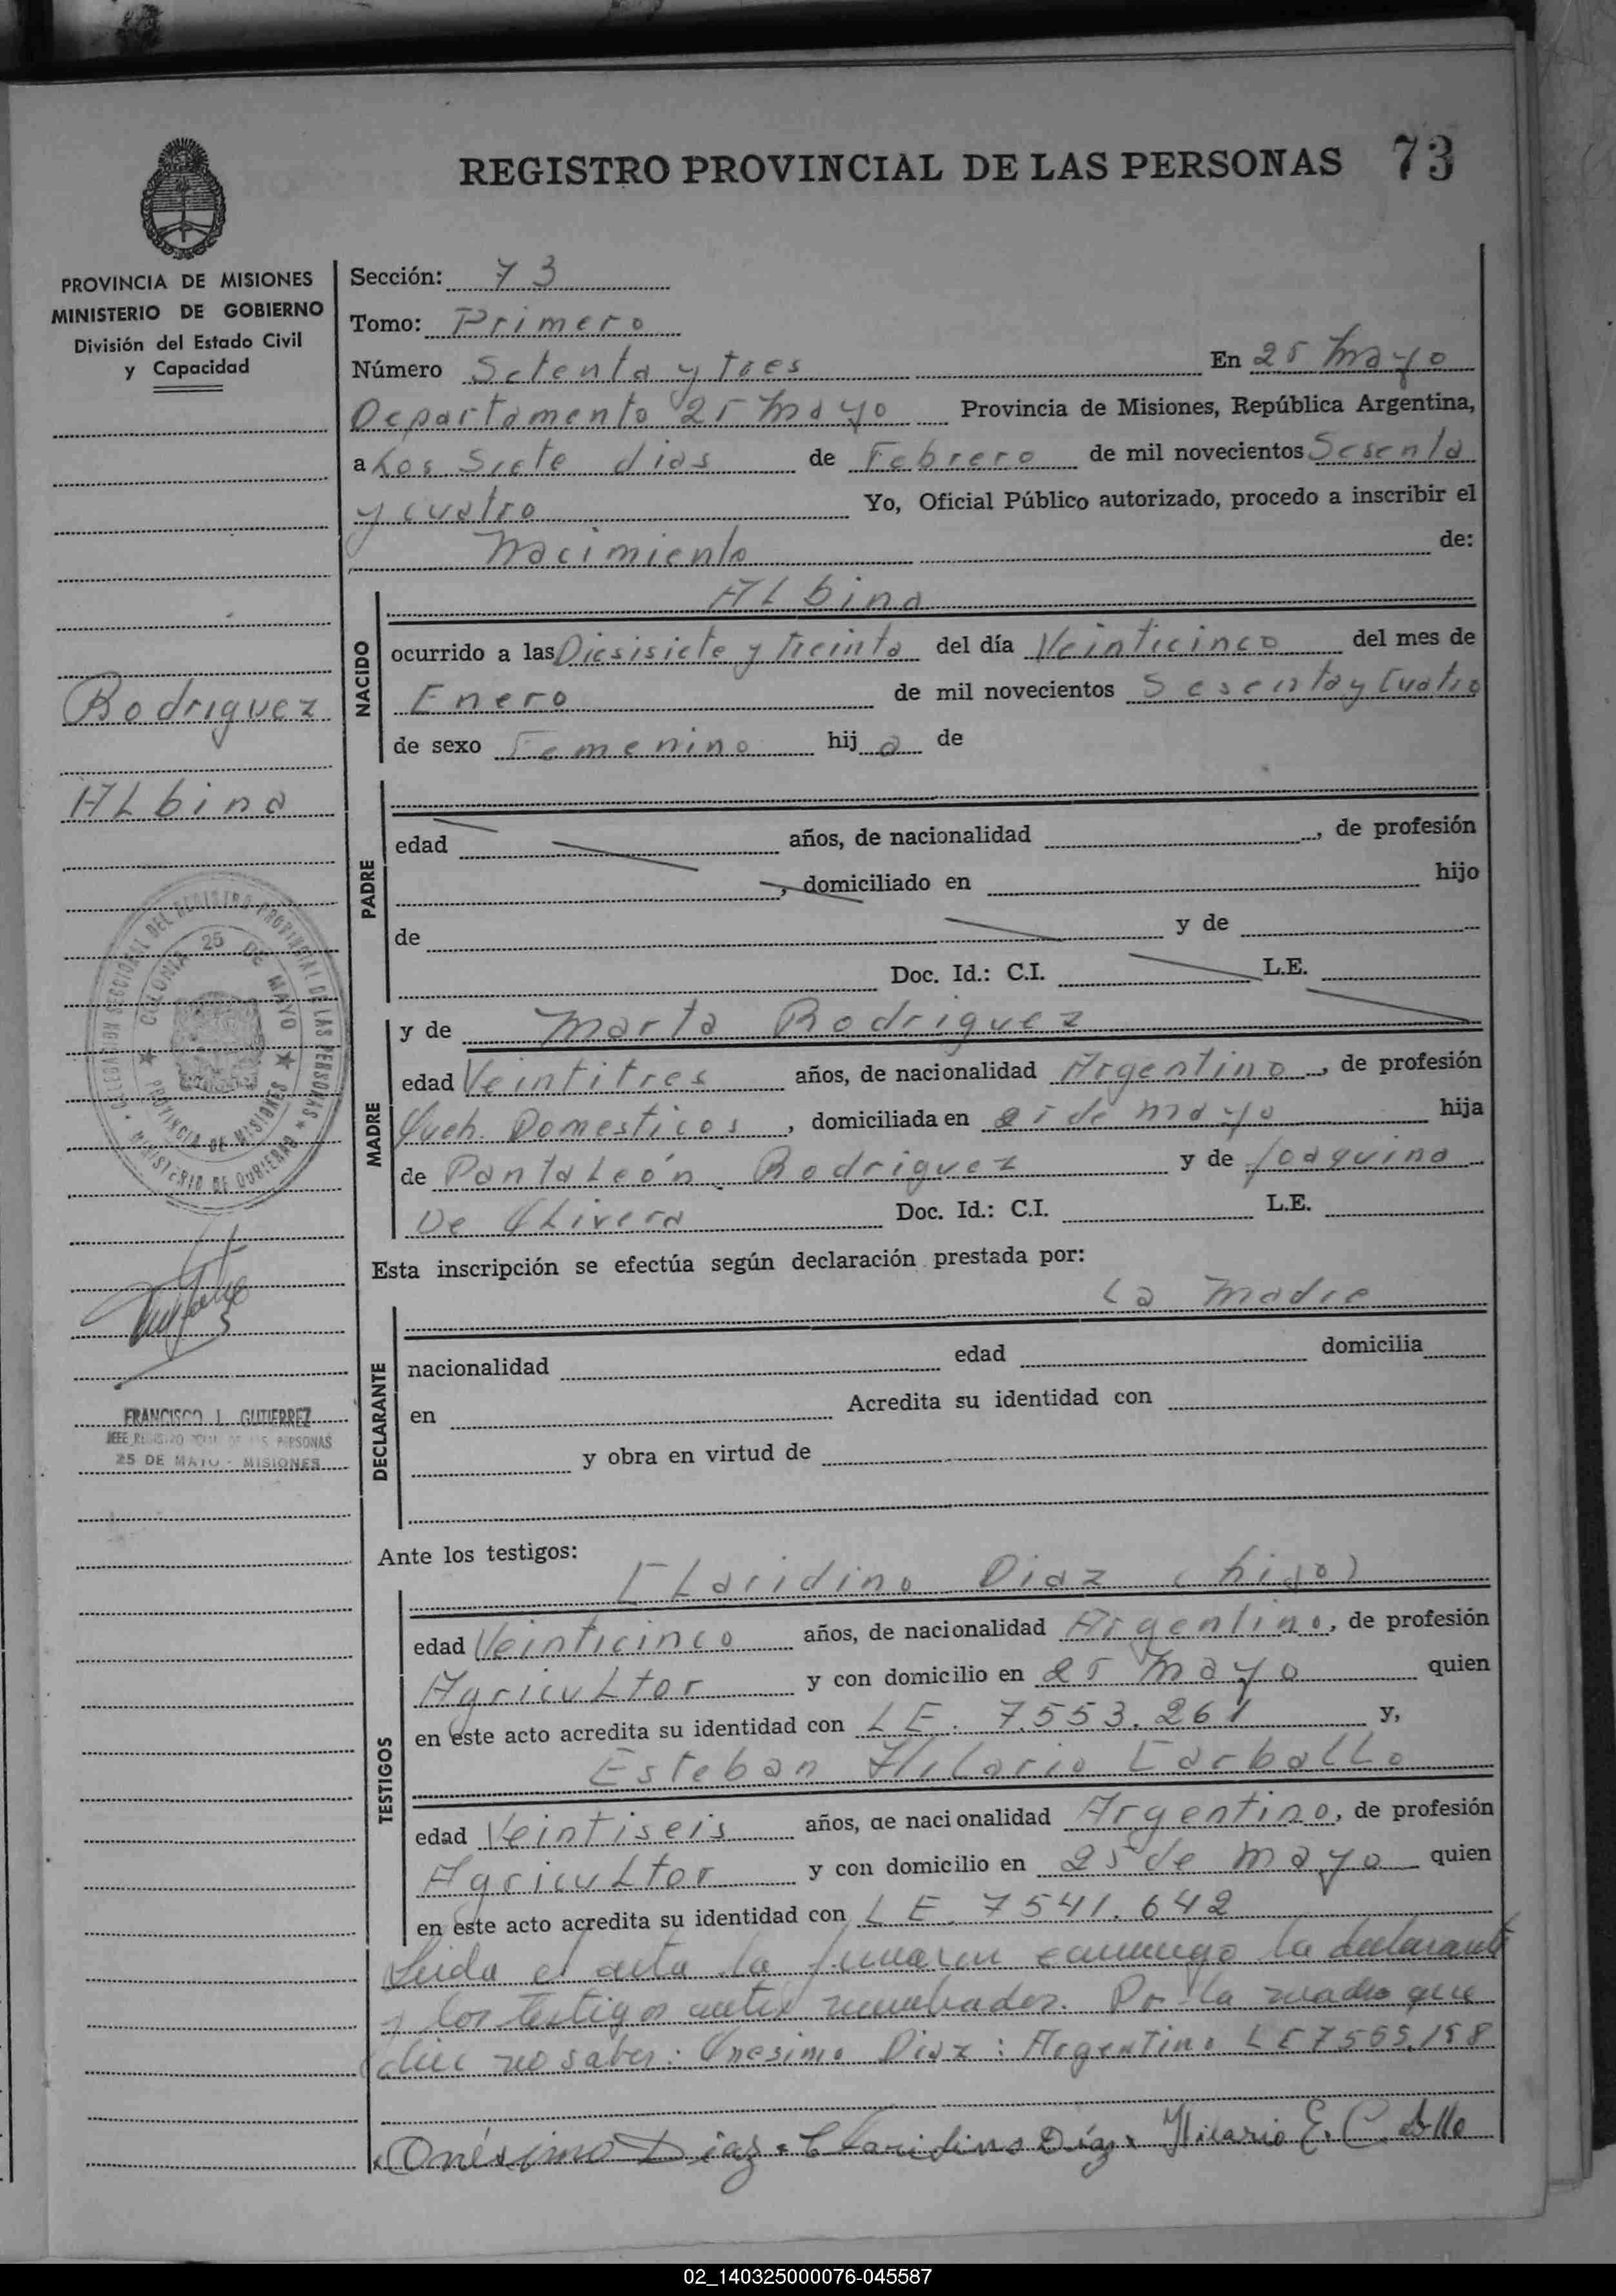 REGISTRO PROVINCIAL DE LAS PERSONAS 73
PROVINCIA DE MISIONES
MINISTERIO DE GOBIERNO
División del Estado Civil
y Capacidad
Rodriguez
ALbina
DELEGACION SECCIONAL DEL REGISTRO PROVINCIAL DE LAS PERSONAS ★ MINISTERIO DE GOBIERNO
COLONIA 25 DE MAYO ★ PROVINCIA DE MISIONES ★
FRANCISCO J. GUTIERREZ
JEFE REGISTRO PCIAL DE LAS PERSONAS
25 DE MAYO - MISIONES
Sección: 73
Tomo: Primero
Número Setenta y tres En 25 Mayo
Departamento 25 Mayo Provincia de Misiones, República Argentina,
a Los Siete dias de Febrero de mil novecientos Sesenta
y cuatro Yo, Oficial Público autorizado, procedo a inscribir el
Nacimiento de:
NACIDO
ALbina
ocurrido a las Diesisiete y treinta del día Veinticinco del mes de
Enero de mil novecientos Sesenta y Cuatro
de sexo Femenino hij a de
PADRE
edad años, de nacionalidad , de profesión
, domiciliado en hijo
de y de
Doc. Id.: C.I. L.E.
MADRE
y de Marta Rodriguez
edad Veintitres años, de nacionalidad Argentina , de profesión
Queh. Domesticos , domiciliada en 25 de Mayo hija
de PantaLeón Rodriguez y de Joaquina
De OLivera Doc. Id.: C.I. L.E.
Esta inscripción se efectúa según declaración prestada por:
DECLARANTE
La Madre
nacionalidad edad domicilia
en Acredita su identidad con
y obra en virtud de
Ante los testigos:
TESTIGOS
CLaridino Diaz (hijo)
edad Veinticinco años, de nacionalidad Argentino, de profesión
AgricuLtor y con domicilio en 25 Mayo quien
en este acto acredita su identidad con LE. 7.553.261 y,
Esteban HiLario CarbaLLo
edad Veintiseis años, de nacionalidad Argentino, de profesión
AgricuLtor y con domicilio en 25 de Mayo quien
en este acto acredita su identidad con LE. 7541.642
Leida el acta la firmaron conmigo la declarante
y los testigos antes nombrados. Por la madre que
dice no saber: Onesimo Diaz: Argentino LE 7555.158
Onésimo Diaz Claridino Díaz Hilario E. C.
02_140325000076-045587